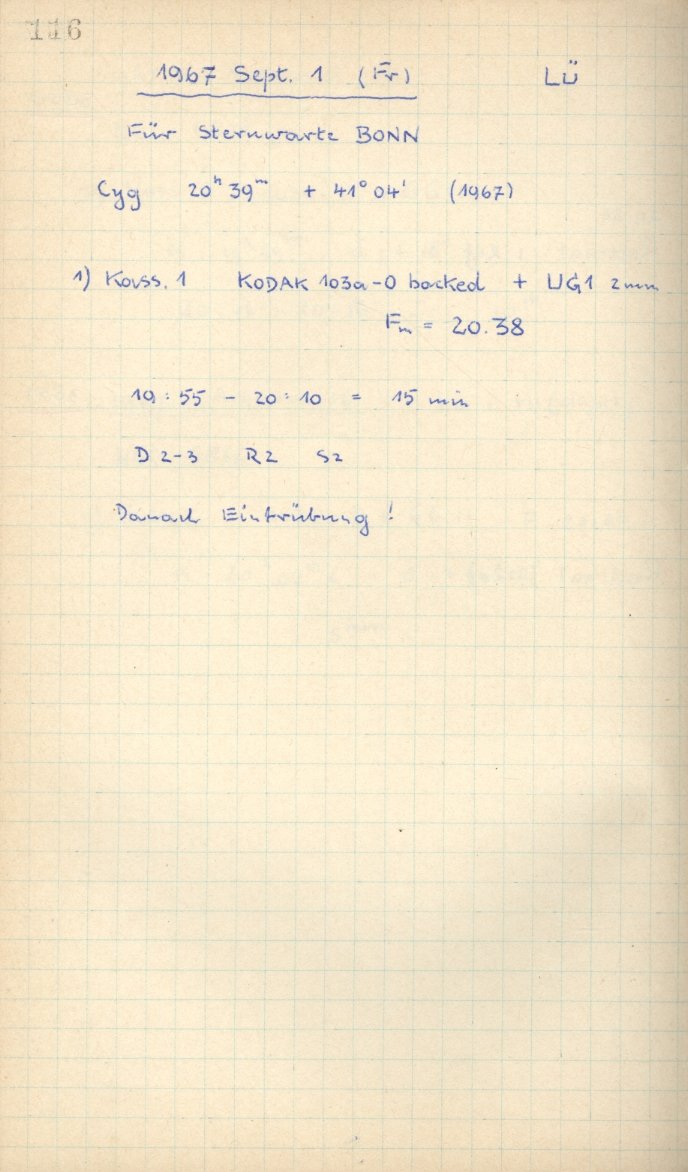 116
1967 Sept. 1 (Fr) LÜ
Für Sternwarte BONN
Cyg 20ʰ 39ᵐ + 41° 04' (1967)
1) Kass. 1 KODAK 103a-O backed + UG1 2mm
Fₘ = 20.38
19:55 - 20:10 = 15 min
D 2-3 R2 S2
Danach Eintrübung!